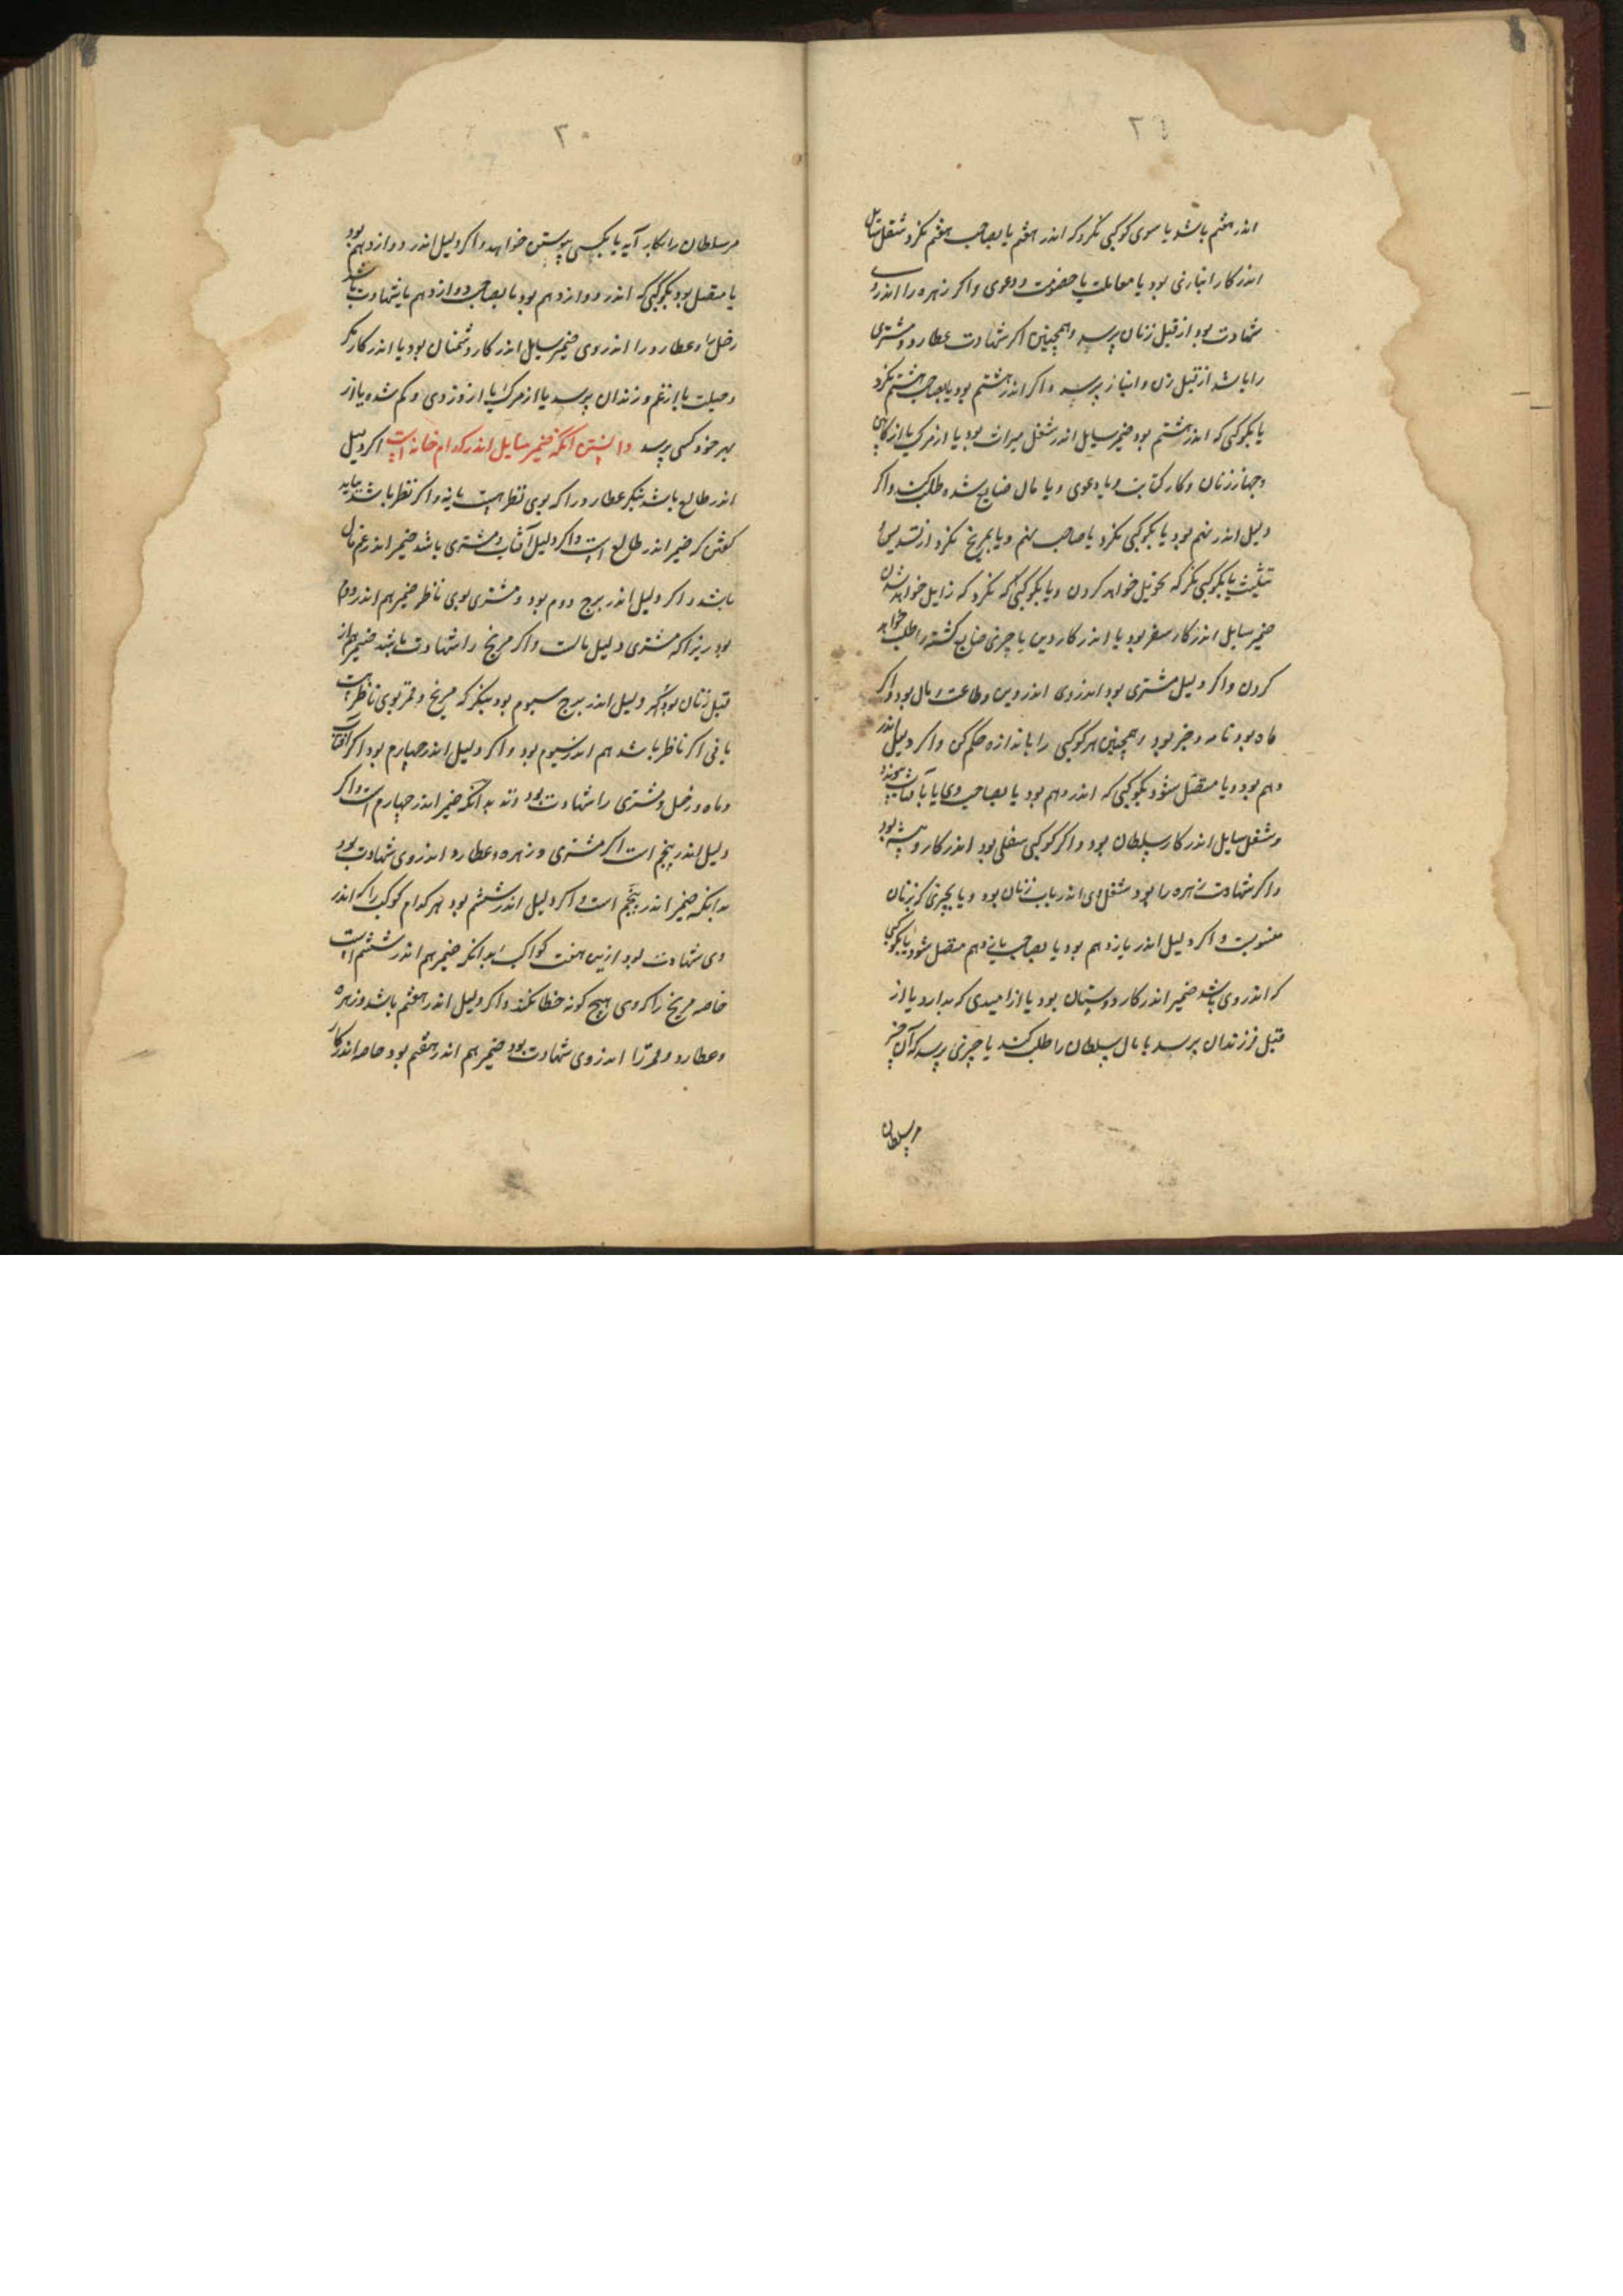 ۲٤
اندر هفتم باشد یا سوی کوکبی نکرد که اندر هفتم یا بصاحب هفتم نکرد شغل سایل
اندر کار انبازی بود یا معاملت یا خصومت و دعوی و اکر زهره را اندر وی
شهادت بود از قبل زنان پرسد و همچنین اکر شهادت عطارد و مشتری
را باشد از قبل زن و انباز پرسد و اکر اندر هشتم بود یا بصاحب هشتم نکرد
یا بکوکبی که اندر هشتم بود ضمیر سایل اندر شغل میراث بود یا از مرک یا از کابین
و جهاز زنان و کار کتابت و یا دعوی و یا مال ضایع شده طلب کند و اکر
دلیل اندر نهم بود یا بکوکبی نکرد یا صاحب نهم و یا بمریخ نکرد از تسدیس و
تثلیث یا بکوکبی نکرد که تحویل خواهد کردن و یا بکوکبی که نکرد که زایل خواهد شدن
ضمیر سایل اندر کار سفر بود یا اندر کار دین یا چیزی ضایع کشته را طلب خواهد
کردن و اکر دلیل مشتری بود اندر وی اندر دین و طاعت و مال بود و اکر
ماه بود نامه و خبر بود و همچنین هر کوکبی را باندازه حکم کن و اکر دلیل اندر
دهم بود و یا متصل شود بکوکبی که اندر دهم بود یا بصاحب وی یا بآفتاب پیوندد
و شغل سایل اندر کار سلطان بود و اکر کوکبی سفلی بود اندر کار و پیشه بود
و اکر شهادت زهره را بود شغل وی اندر باب زنان بود و یا بچیزی که بزنان
منسوبست و اکر دلیل اندر یازدهم بود یا بصاحب یازدهم متصل شود یا بکوکبی
که اندر وی باشد ضمیر اندر کار دوستان بود یا از امیدی که بدارد یا از
قبل فرزندان پرسد یا مال سلطان را طلب کند یا چیزی پرسد که آن چیز
مر سلطان
۲۰
مر سلطان را بکار آید یا بکسی پیوستن خواهد و اکر دلیل اندر دوازدهم بود
یا متصل بود بکوکبی که اندر دوازدهم بود یا بصاحب دوازدهم یا شهادت باشد
زحل را و عطارد را اندر وی ضمیر سایل اندر کار دشمنان بود یا اندر کار مکر
و حیلت یا از غم و زندان پرسد یا از مرک یا از دزدی و کم شده یا از
بهر خود کسی پرسد دانستن انکه ضمیر سایل اندر کدام خانه است اکر دلیل
اندر طالع باشد بنکر عطارد را که بوی نظر هست یا نه و اکر نظر باشد بباید
کفتن که ضمیر اندر طالع است و اکر دلیل آفتاب و مشتری باشد ضمیر اندر غم مال
باشد و اکر دلیل اندر برج دوم بود و مشتری بوی ناظر ضمیر هم اندر دوم
بود زیرا که مشتری دلیل مالست و اکر مریخ را شهادت باشد ضمیر هم از
قبل زنان بود و اکر دلیل اندر برج سیوم بود بنکر که مریخ و قمر بوی ناظر هست
یا نی اکر ناظر باشد هم اندر سیوم بود و اکر دلیل اندر چهارم بود اکر آفتاب
و ماه و زحل و مشتری را شهادت بود بدانکه ضمیر اندر چهارم است و اکر
دلیل اندر پنجم است اکر مشتری و زهره و عطارد اندر وی شهادت بود
بدانکه ضمیر اندر پنجم است و اکر دلیل اندر ششم بود هر کدام کوکب را که اندر
وی شهادت بود ازین هفت کواکب بدانکه ضمیر هم اندر ششم است
خاصه مریخ را که وی هیچ کونه خطا نکند و اکر دلیل اندر هفتم باشد و زهره
و عطارد و قمر را اندر وی شهادت بود ضمیر هم اندر هفتم بود خاصه اندر کار